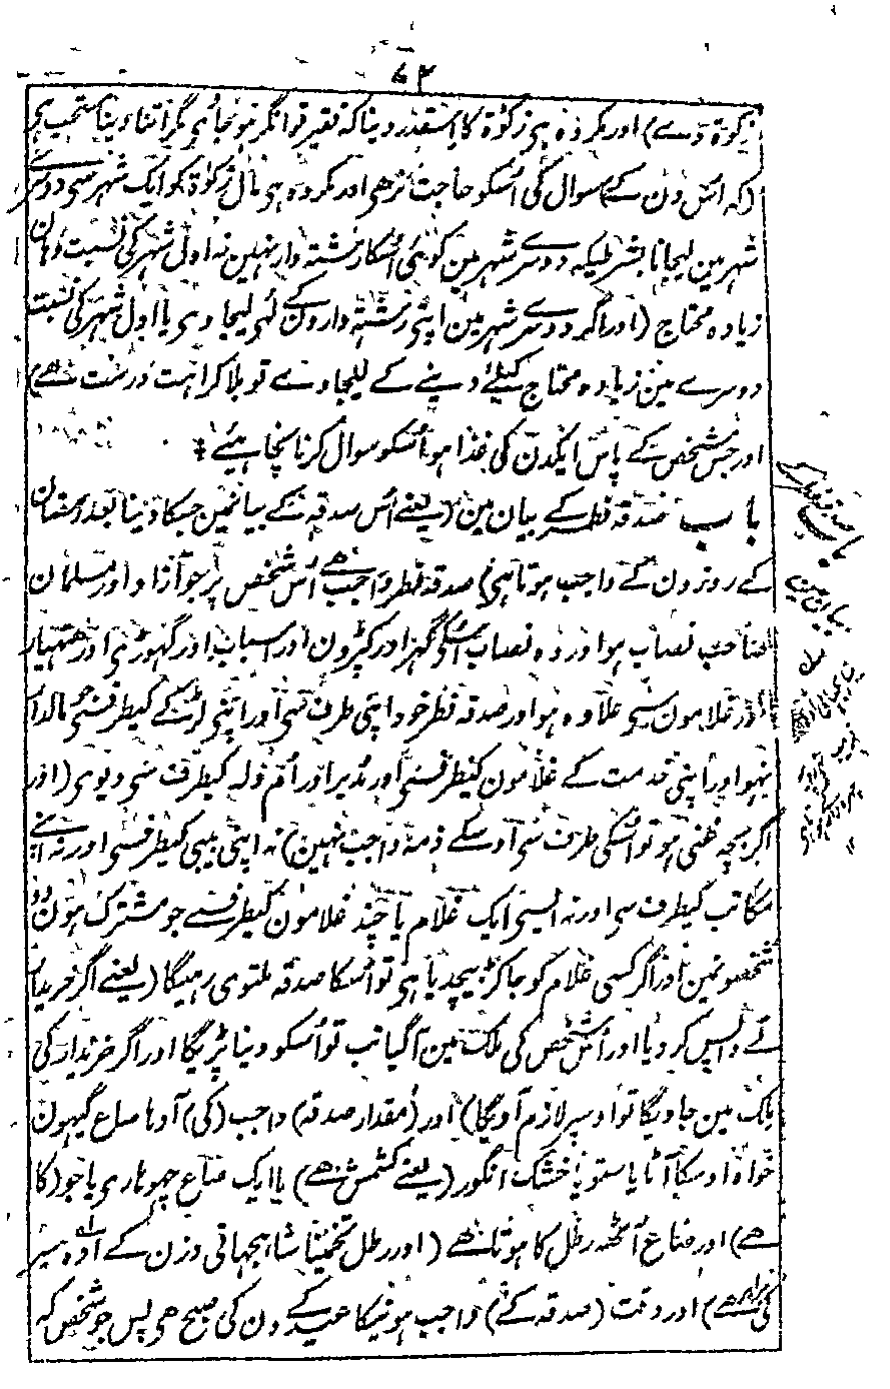 ۷۲
زکوٰۃ دے) اور مکروہ ہی زکوٰۃ کا اسقدر دینا کہ فقیر توانگر ہو جائی مگر اتنا دینا مستحب ہی
(کہ اس دن کے) سوال کی اسکو حاجت نرھی اور مکروہ ہی مال زکوٰۃ کو ایک شہر سی دوسرے
شہر مین لیجانا بشرطیکہ دوسرے شہر مین کوئی اسکا رشتہ دار نہین نہ اول شہر کی نسبت وہان
زیادہ محتاج (اور اگر دوسرے شہر مین اپنی رشتہ دارون کے لئی لیجاوی یا اول شہر کی نسبت
دوسرے مین زیادہ محتاج کیلئے دینے کے لیجاوے تو بلا کراہت درست ھے)
اور جس شخص کے پاس ایکدن کی غذا ہو اسکو سوال کرنا نچاہیئے
باب صدقہ فطر کے بیان مین (یعنے اس صدقہ کے بیانمین جسکا دینا بعد رمضان
کے روزون کے واجب ہوتا ہی) صدقہ فطر واجب ھے اس شخص پر جو آزاد اور مسلمان
صاحب نصاب ہو اور وہ نصاب اسکی گہر اور کپڑون اور اسباب اور گہوڑی اور ھتھیار
اور غلامون سی علاوہ ہو اور صدقہ فطر خود اپنی طرف سی اور اپنی لڑکے کیطرفسی جو مالدار
نہو اور اپنی خدمت کے غلامون کیطرفسی اور مدبر اور ام ولد کیطرف سی دیوی (اور
اگر بچہ غنی ہو تو اسکی طرف سی اوسکے ذمہ واجب نہین) نہ اپنی بیبی کیطرفسی اور نہ اپنے
مکاتب کیطرف سی اور نہ ایسی ایک غلام یا چند غلامون کیطرفسے جو مشترک ہون دو
شخصونمین اور اگر کسی غلام کو جاکڑ بیچدیا ہی تو اسکا صدقہ ملتوی رہیگا (یعنے اگر خریدار
نے واپس کر دیا اور اس شخص کی ملک مین آگیا تب تو اسکو دینا پڑیگا اور اگر خریدار کی
ملک مین جاویگا تو اوسپر لازم آویگا) اور (مقدار صدقہ) واجب (کی) آدھا صاع گیہون
خواہ اوسکا آٹا یا ستو یا خشک انگور (یعنے کشمش ھے) یا ایک صاع چھوہاری یا جو (کا
ھے) اور صاع آٹھ رطل کا ہوتا ھے (اور رطل تخمینا شاہجہانی وزن کے آدہ سیر
کی برابر ھے) اور وقت (صدقہ کے) واجب ہونیکا عید کے دن کی صبح ھی پس جو شخص کہ
باب صدقہ فطر کے
بیان مین